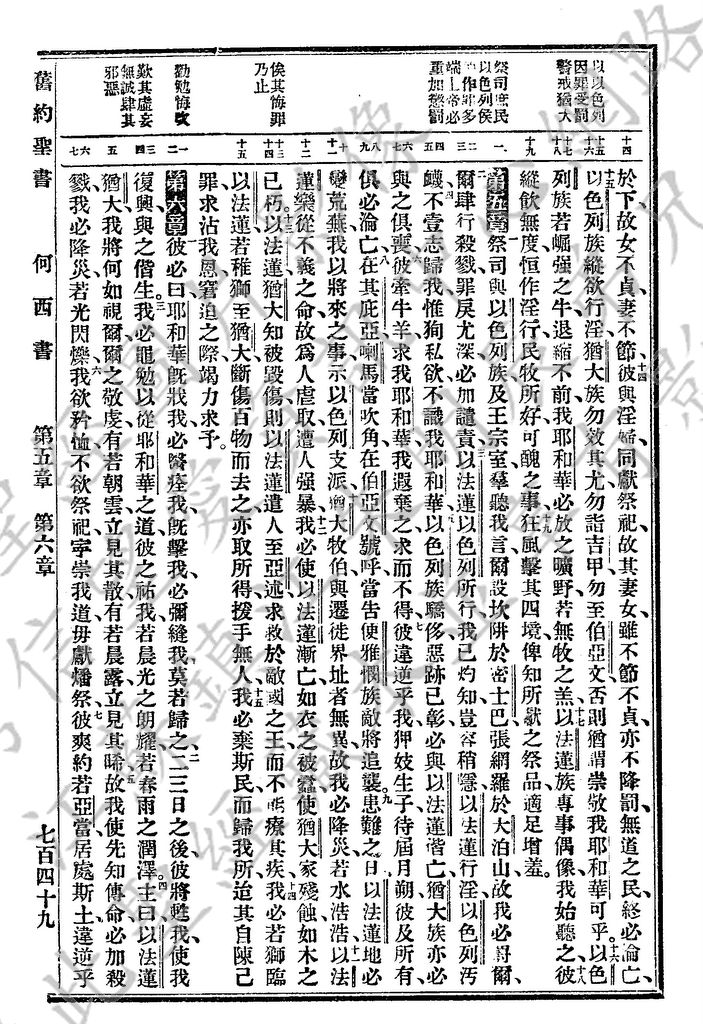 以以色列
因罪受罰
警戒猶大
祭司庶民
以色列侯
作罪多
端上帝必
重加懲罰
俟其悔罪
乃止
勸勉悔改
歎其虛妄
無誠肆其
邪惡
十四
十五
十六
十七
十八
十九
一
二
三
四
五
六
七
八
九
十
十一
十二
十三
十四
十五
一
二
三
四
五
六
七
於下故女不貞妻不節彼與淫婦同獻祭祀故其妻女雖不節不貞亦不降罰無道之民終必淪亡
以色列族縱欲行淫猶大族勿效其尤勿詣吉甲勿至伯亞文否則猶謂崇敬我耶和華可乎以色
列族若崛强之牛退縮不前我耶和華必放之曠野若無牧之羔以法蓮族專事偶像我始聽之彼
縱飲無度恒作淫行民牧所好可醜之事狂風擊其四境俾知所獻之祭品適足增羞。
第五章 祭司與以色列族及王宗室羣聽我言爾設坎阱於密士巴張網羅於大泊山故我必罰爾
爾肆行殺戮罪戾尤深必加譴責以法蓮以色列所行我已灼知豈容稍隱以法蓮行淫以色列汚
衊不壹志歸我惟狥私欲不識我耶和華以色列族驕侈惡跡已彰必與以法蓮偕亡猶大族亦必
與之俱喪彼牽牛羊求我耶和華我遐棄之求而不得彼違逆乎我狎妓生子待屆月朔彼及所有
俱必淪亡在其庇亞喇馬當吹角在伯亞文號呼當告便雅憫族敵將追襲患難之日以法蓮地必
變荒蕪我以將來之事示以色列支派猶大牧伯與遷徙界址者無異故我必降災若水浩浩以法
蓮樂從不義之命故爲人虐取遭人强暴我必使以法蓮漸亡如衣之被蠹使猶大家殘蝕如木之
已朽以法蓮猶大知被毀傷則以法蓮遣人至亞述求救於敵國之王而不能療其疾我必若獅臨
以法蓮若稚獅至猶大斷傷百物而去之亦取所得援手無人我必棄斯民而歸我所迨其自陳己
罪求沾我恩窘迫之際竭力求予。
第六章 彼必曰耶和華旣戕我必醫痊我旣擊我必彌縫我莫若歸之二三日之後彼將甦我使我
復興與之偕生我必黽勉以從耶和華之道彼之祐我若晨光之朗耀若春雨之潤澤主曰以法蓮
猶大我將何如視爾爾之敬虔有若朝雲立見其散有若晨露立見其晞故我使先知傳命必加殺
戮我必降災若光閃爍我欲矜恤不欲祭祀寧崇我道毋獻燔祭彼爽約若亞當居處斯土違逆乎
舊約聖書 何西書 第五章 第六章 七百四十九